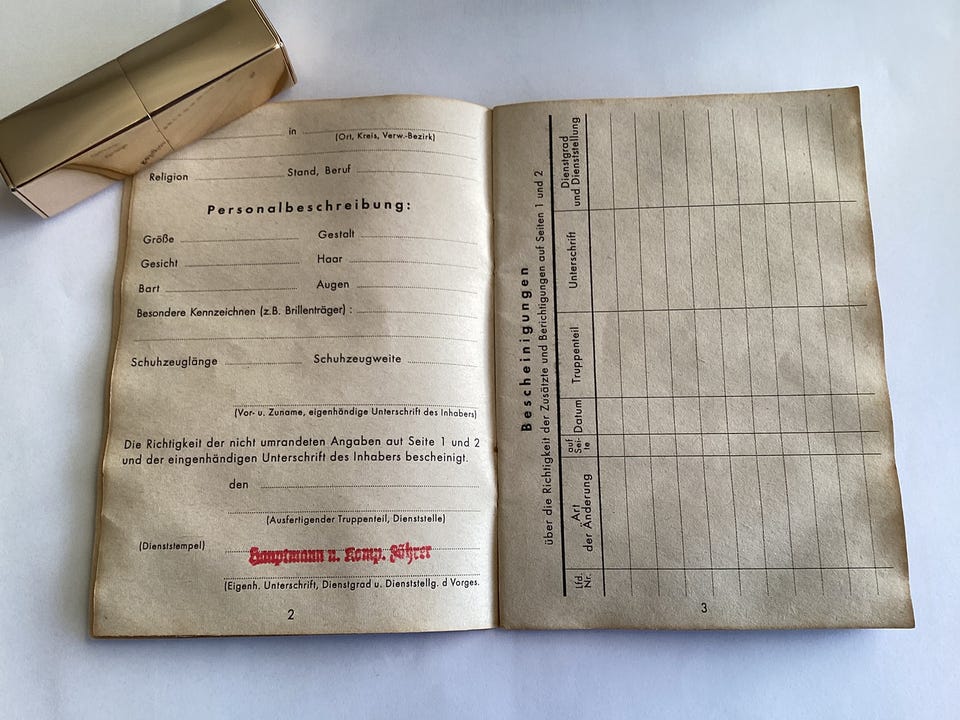 in
(Ort, Kreis, Verw.-Bezirk)
Religion Stand, Beruf
Personalbeschreibung:
Größe Gestalt
Gesicht Haar
Bart Augen
Besondere Kennzeichen (z.B. Brillenträger) :
Schuhzeuglänge Schuhzeugweite
(Vor- u. Zuname, eigenhändige Unterschrift des Inhabers)
Die Richtigkeit der nicht umrandeten Angaben aut Seite 1 und 2
und der eingenhändigen Unterschrift des Inhabers bescheinigt.
den
(Ausfertigender Truppenteil, Dienststelle)
(Dienststempel)
Hauptmann u. Komp. Führer
(Eigenh. Unterschrift, Dienstgrad u. Dienststellg. d Vorges.
2
Bescheinigungen
über die Richtigkeit der Zusätzte und Berichtigungen auf Seiten 1 und 2
Lfd. Nr.
Art der Änderung
auf Sei- te
Datum
Truppenteil
Unterschrift
Dienstgrad und Dienststellung
3